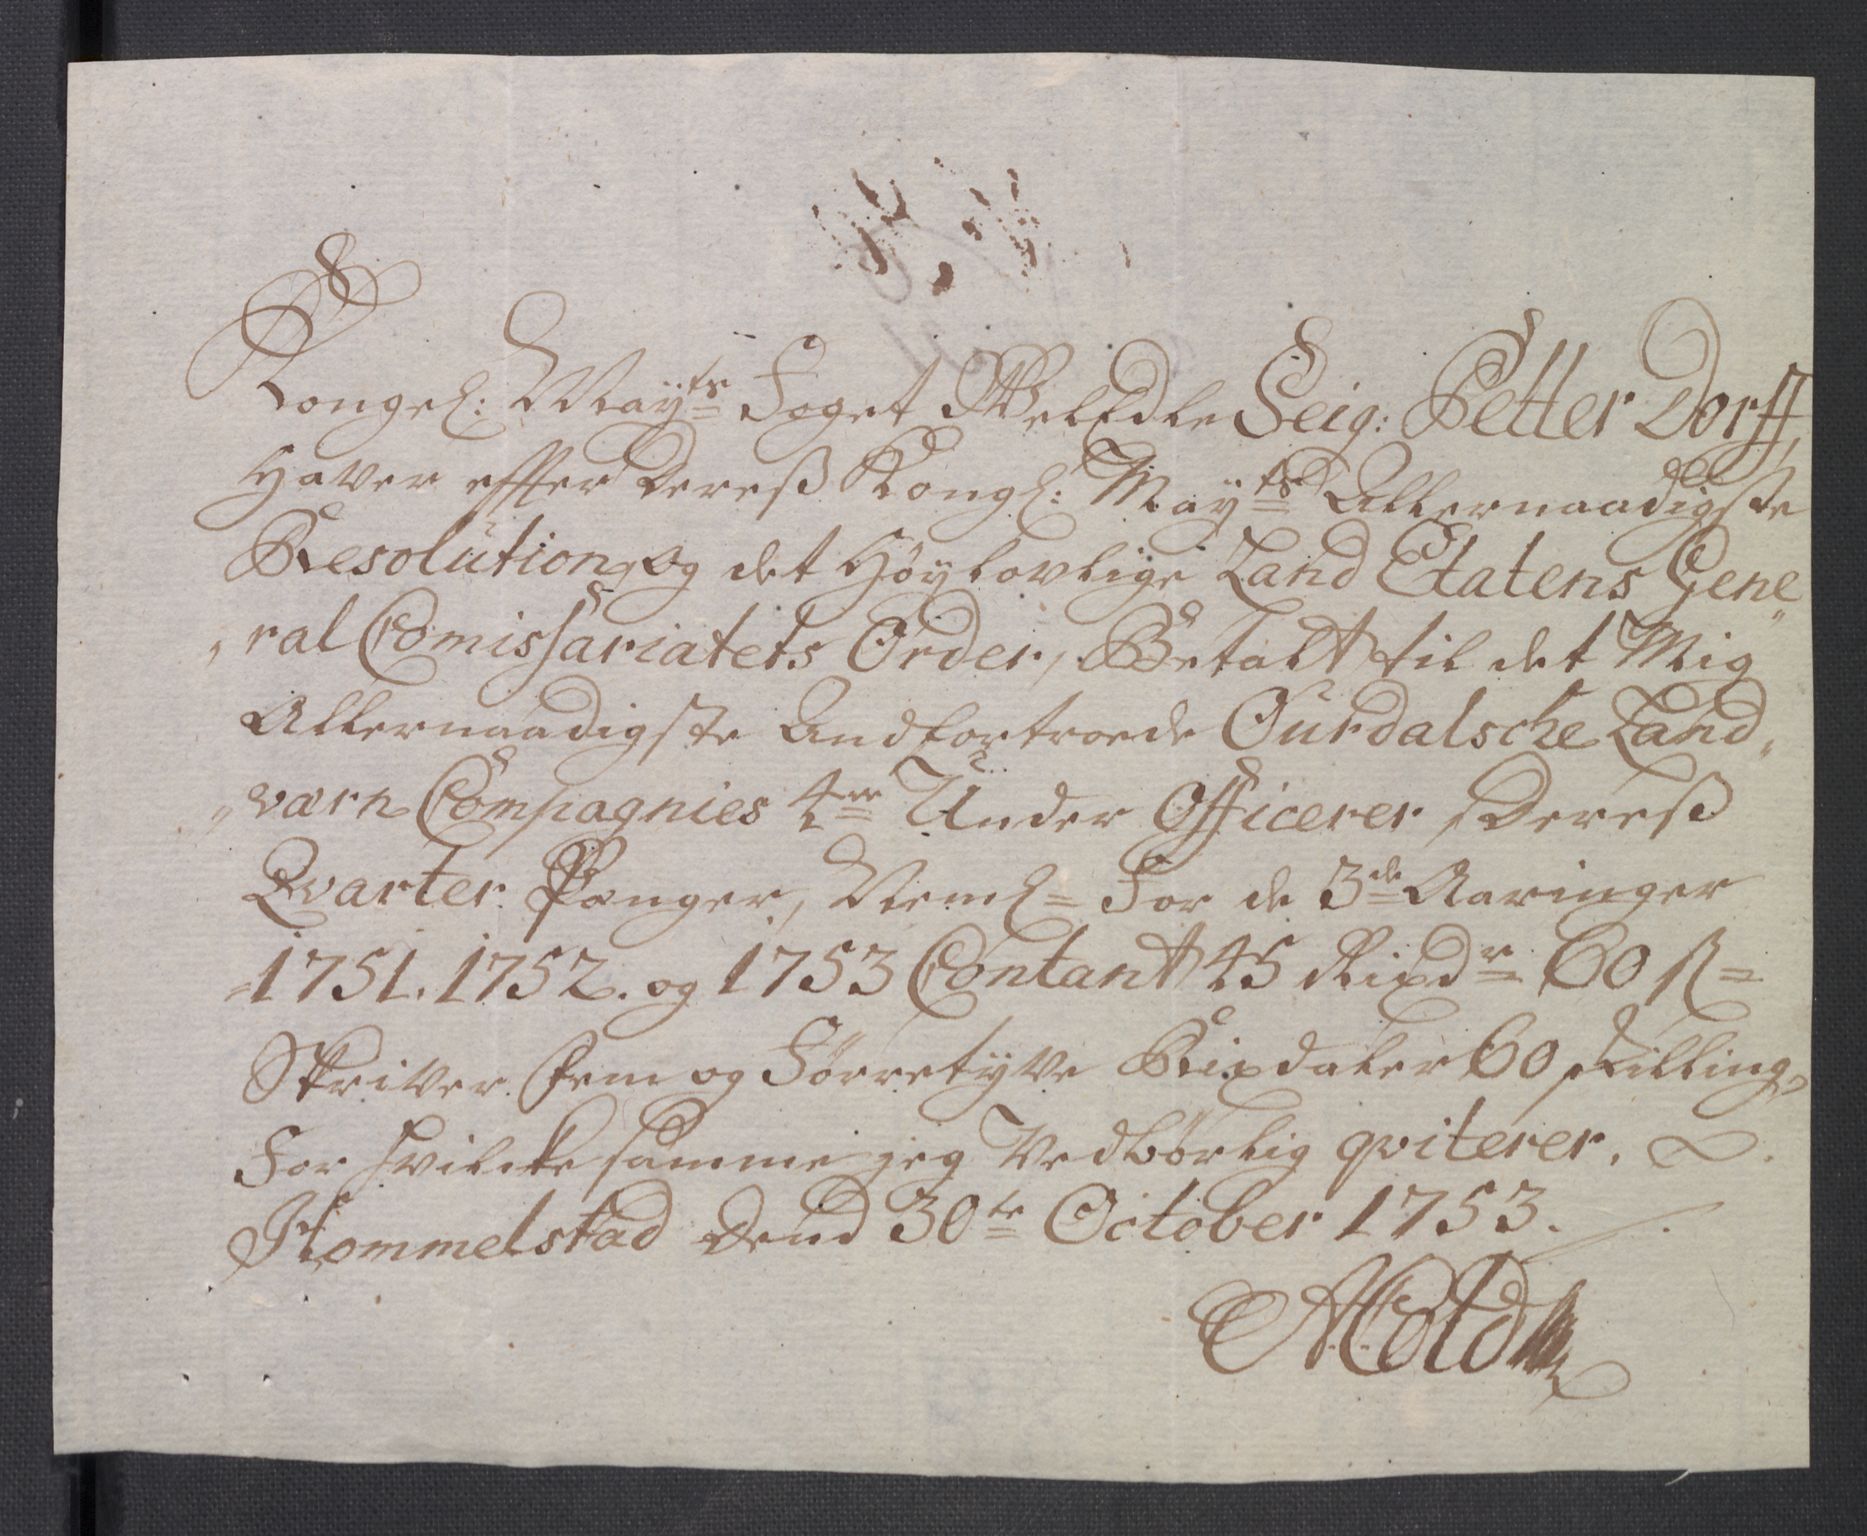 Kongel: Mayts Foget WelEdle Seig: Petter Dorff,
Haver effter Deres​s Kongl: Mayts Allernaadigste
Resolution, og det Høylovlige Land Etatens Gene
„ral Comissariatets Order, Betalt til det Mig
Allernaadigste Andfortroede Ourdalsche Land„
„værn Compagnies 4re Under Officerer, Deress
Qvarter Penger, Neml= For de 3de Aaringer
1751. 1752. og 1753 Contant 45 Rixdr 60 s=
Skriver Fem og Förretyve Rixdaler 60 skilling,
For hvilcke samme jeg Vedbørlig qviterer.
Hommelstad Dend 30te October 1753.
A Cold